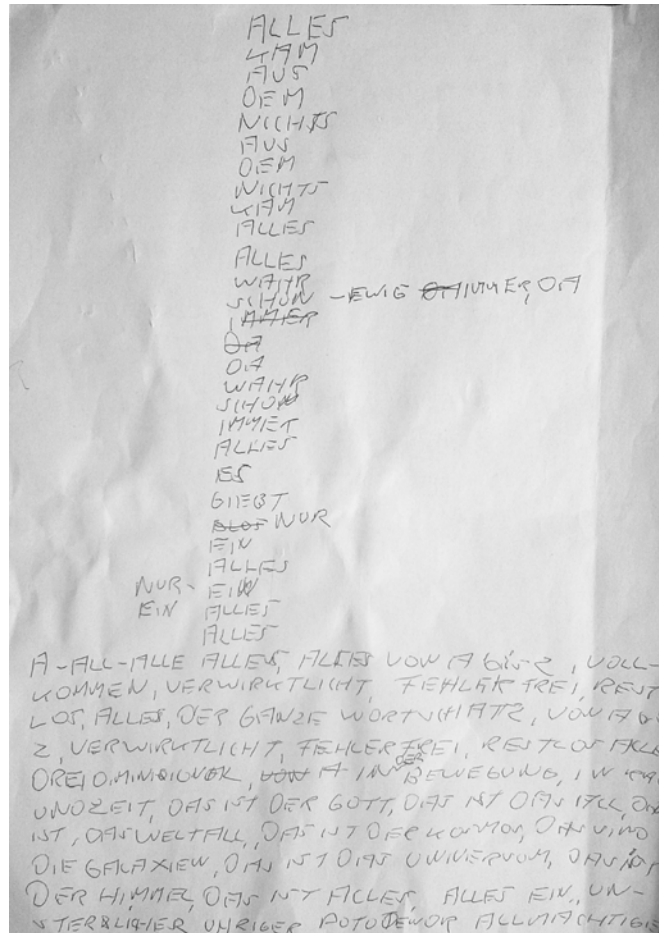 ALLES
KAM
AUS
DEM
NICHTS
AUS
DEM
NICHTS
KAM
ALLES
ALLES
WAHR
SCHON - EWIG IMMER, DA
IMMER
DA
DA
WAHR
SCHON
IMMER
ALLES
ES
GIEBT
BLOS NUR
EIN
ALLES
NUR - EIN
EIN ALLES
ALLES
A-ALL-ALLE ALLES, ALLES VON A bis Z, VOLL-
KOMMEN, VERWIRKTLICHT, FEHLER FREI, REST
LOS, ALLES, DER GANZE WORTSCHATZ, VON A
Z, VERWIRKTLICHT, FEHLERFREI, RESTLOS ALLE
DREIDIMINSIONEN, VON A IN DER BEWEGUNG, IN
UND ZEIT, DAS IST DER GOTT, DAS IST DAS ALL,
IST, DAS WELTALL, DAS IST DER KOSMOS, DAS SIND
DIE GALAXIEN, DAS IST DAS UNIVERSUM, DAS IST
DER HIMMEL, DAS IST ALLES, ALLES EIN, UN-
STERBLICHER ALLMÄCHTIGE